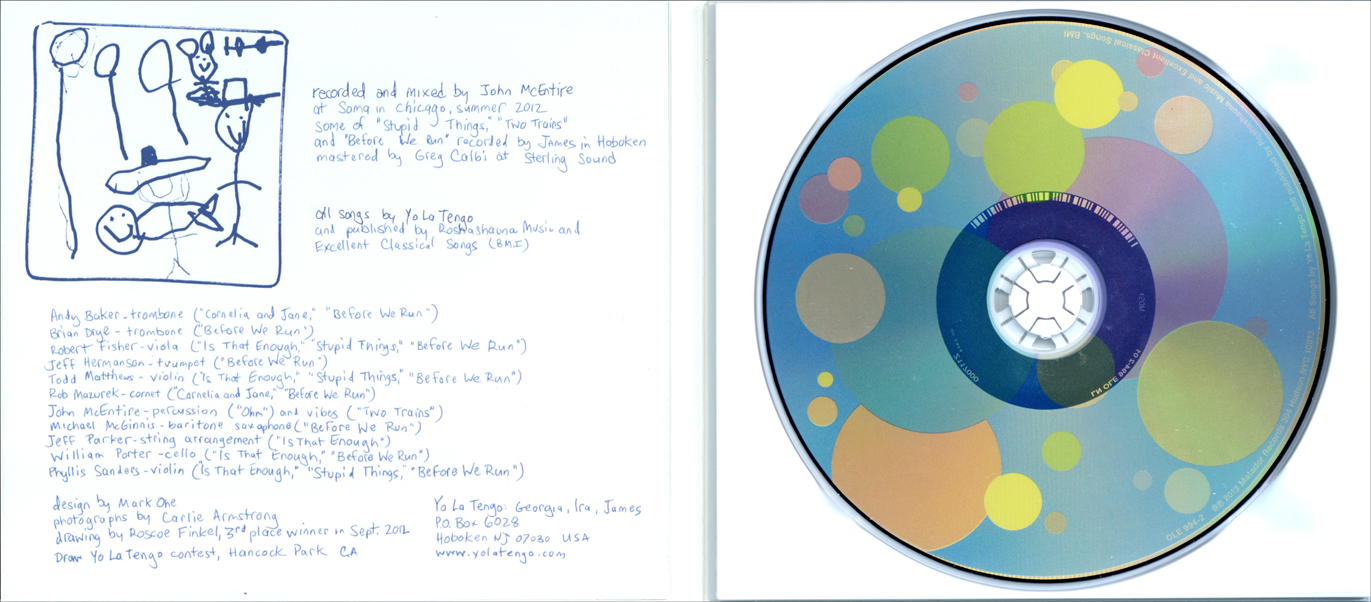 recorded and mixed by John McEntire
at Soma in Chicago, summer 2012
some of "Stupid Things," "Two Trains"
and "Before We Run" recorded by James in Hoboken
mastered by Greg Calbi at Sterling Sound
all songs by Yo La Tengo
and published by Roshashauna Music and
Excellent Classical Songs (BMI)
Andy Baker - trombone ("Cornelia and Jane," "Before We Run")
Brian Drye - trombone ("Before We Run")
Robert Fisher - viola ("Is That Enough," "Stupid Things," "Before We Run")
Jeff Hermanson - trumpet ("Before We Run")
Todd Matthews - violin ("Is That Enough," "Stupid Things," "Before We Run")
Rob Mazurek - cornet ("Cornelia and Jane," "Before We Run")
John McEntire - percussion ("Ohm") and vibes ("Two Trains")
Michael McGinnis - baritone saxophone ("Before We Run")
Jeff Parker - string arrangement ("Is That Enough")
William Porter - cello ("Is That Enough," "Before We Run")
Phyllis Sanders - violin ("Is That Enough," "Stupid Things," "Before We Run")
design by Mark Ohe
photographs by Carlie Armstrong
drawing by Roscoe Finkel, 3rd place winner in Sept. 2012
Draw Yo La Tengo contest, Hancock Park CA
Yo La Tengo: Georgia, Ira, James
P.O. Box 6028
Hoboken NJ 07030 USA
www.yolatengo.com
OLE 994-2 ℗© 2013 Matador Records 304 Hudson NYC 10013 All Songs by Yo La Tengo and published by Roshashauna Music and Excellent Classical Songs, BMI